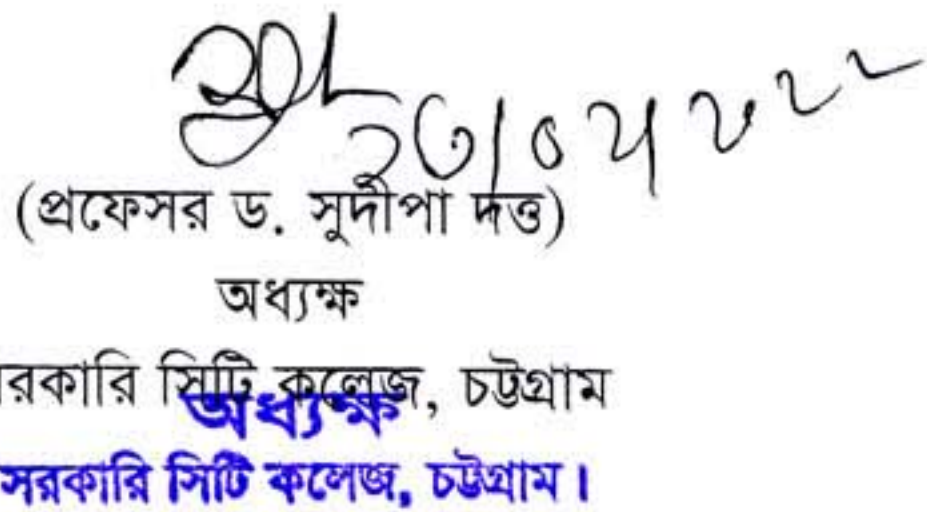 (প্রফেসর ড. সুদীপা দত্ত)
অধ্যক্ষ
রকারি সিটি কলেজ, চট্টগ্রাম
অধ্যক্ষ
সরকারি সিটি কলেজ, চট্টগ্রাম।